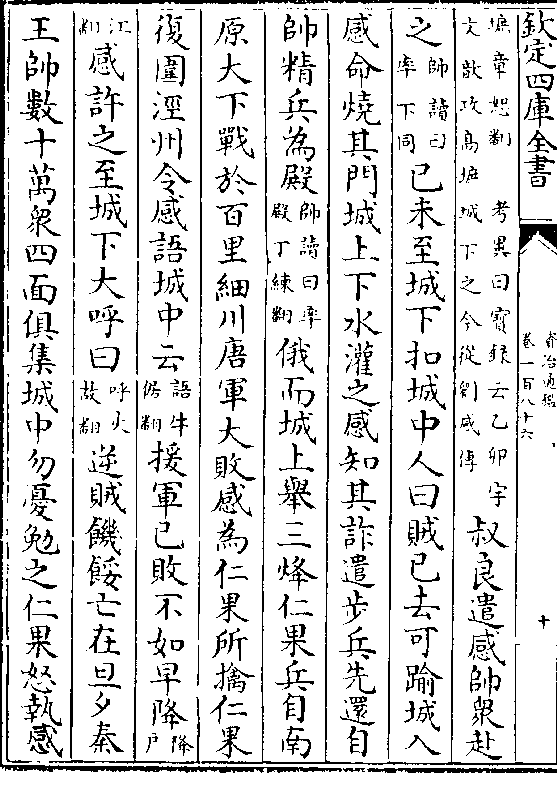 欽定四庫全書
資治通鑑
卷一百八十六
十
墌章恕翻 考異曰實錄云乙卯宇
文歆攻高墌城下之今從劉感傳
叔良遣感帥衆赴
之帥讀曰率下同已未至城下扣城中人曰賊已去可踰城入
感命燒其門城上下水灌之感知其詐遣步兵先還自
帥精兵為殿帥讀曰率殿丁練翻俄而城上舉三烽仁果兵自南
原大下戰於百里細川唐軍大敗感為仁果所擒仁果
復圍涇州令感語城中云語牛倨翻援軍已敗不如早降降户
江翻感許之至城下大呼曰呼火故翻逆賊饑餒亡在旦夕秦
王帥數十萬衆四面俱集城中勿憂勉之仁果怒執感